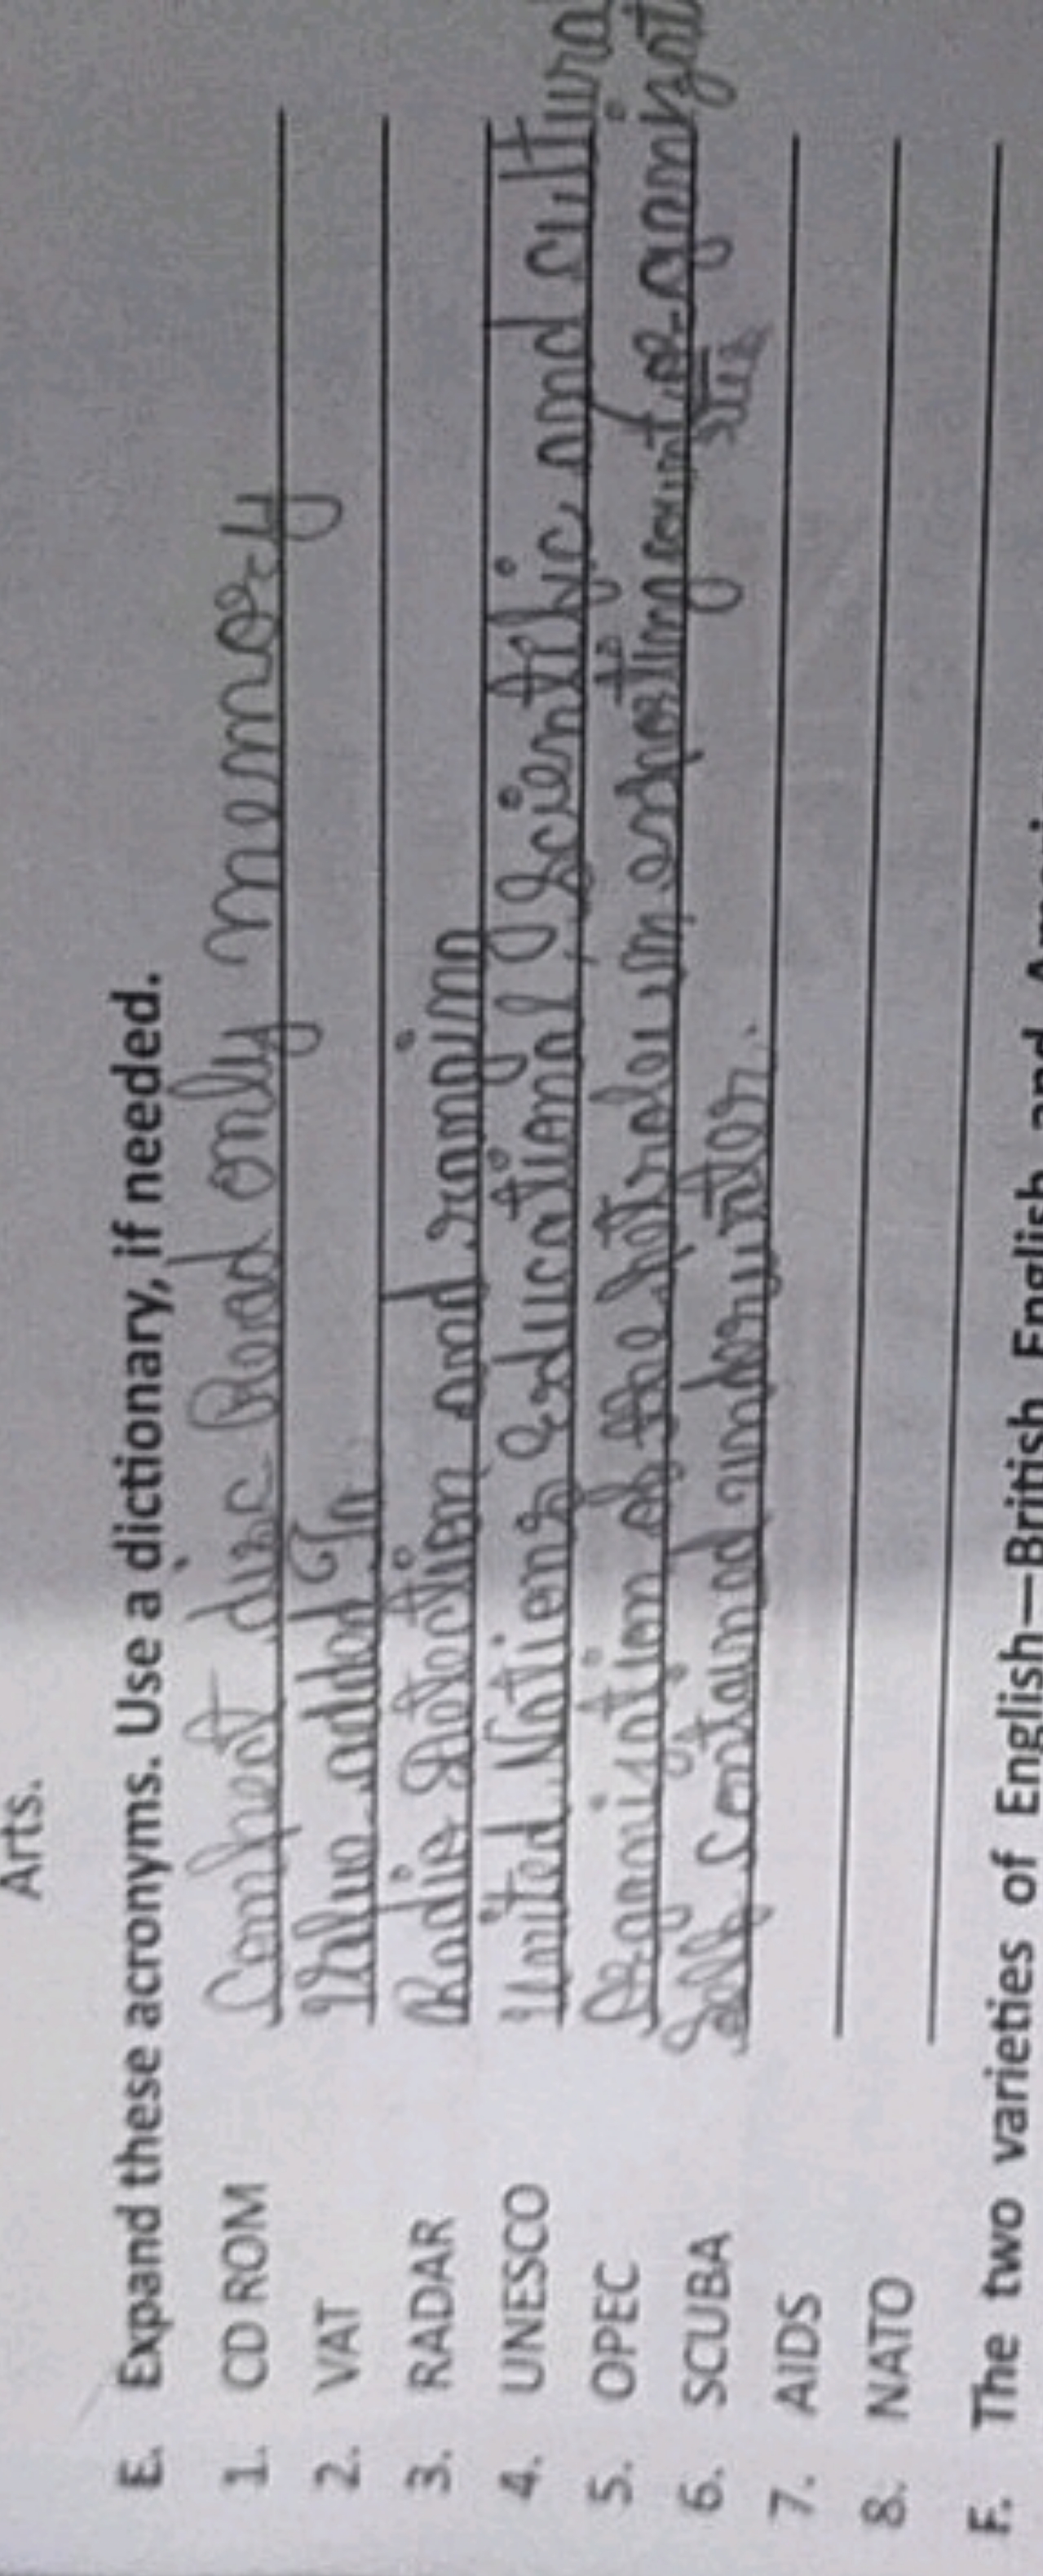 Arts.
E. Expand these acronyms. Use a dictionary, if needed.
1. CD ROM Compact disc Read only memory
2. VAT Value added
3. RADAR Radio detection and ranging
4. UNESCO United Nations Educational, Scientific and cultural organizat
5. OPEC Organisation of the petroleum exporting countries
6. SCUBA Self contained under
7. AIDS
8. NATO
F. The two varieties of English—British English and Ameri